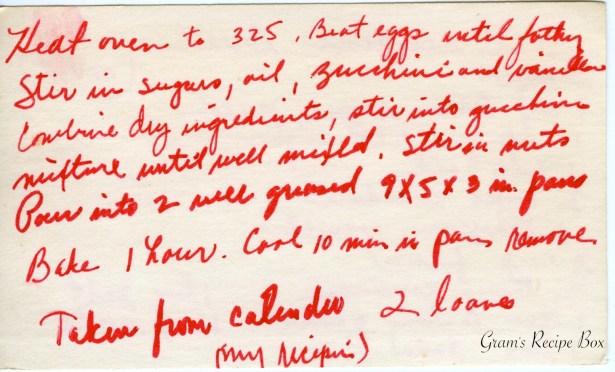 Heat oven to 325. Beat eggs until fothy
Stir in sugars, oil, zucchini and vanilla
Combine dry ingredients, stir into zucchini
mixture until well mixed. Stir in nuts
Pour into 2 well greased 9X5X3 in. pans
Bake 1 hour. Cool 10 min in pans remove
Taken from calender 2 loaves
(my recipes)
Gram's Recipe Box